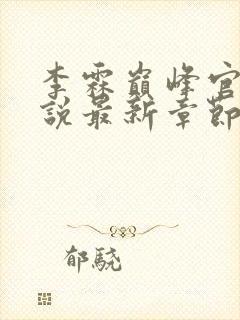 李霖巔峰官
說最新章節
郁驍